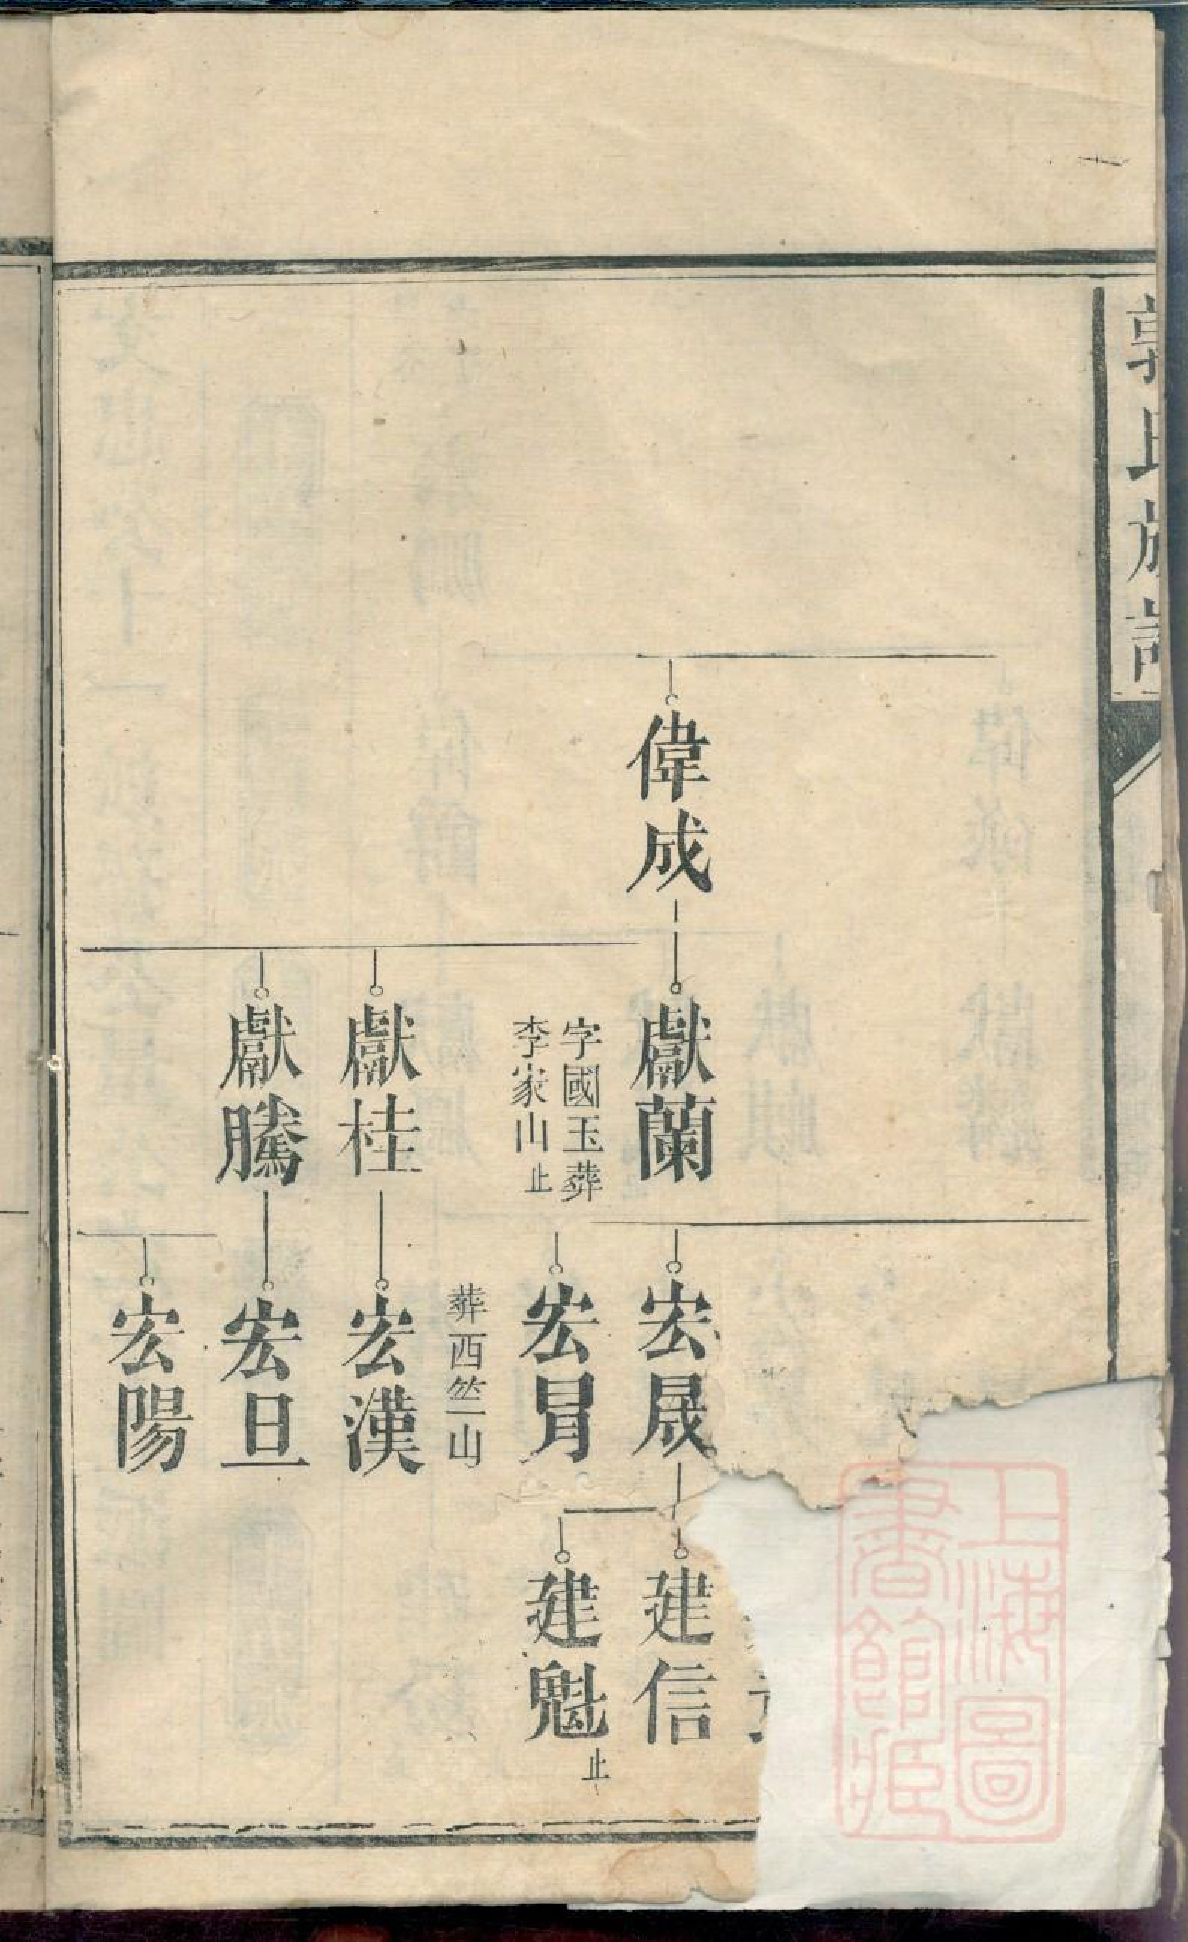 郭氏族譜
偉成
獻蘭
字國玉葬
李家山止
獻桂
獻騰
宏晟
宏冐
葬西竺山
宏漢
宏旦
宏陽
建信
建魁止
上海圖
書館藏